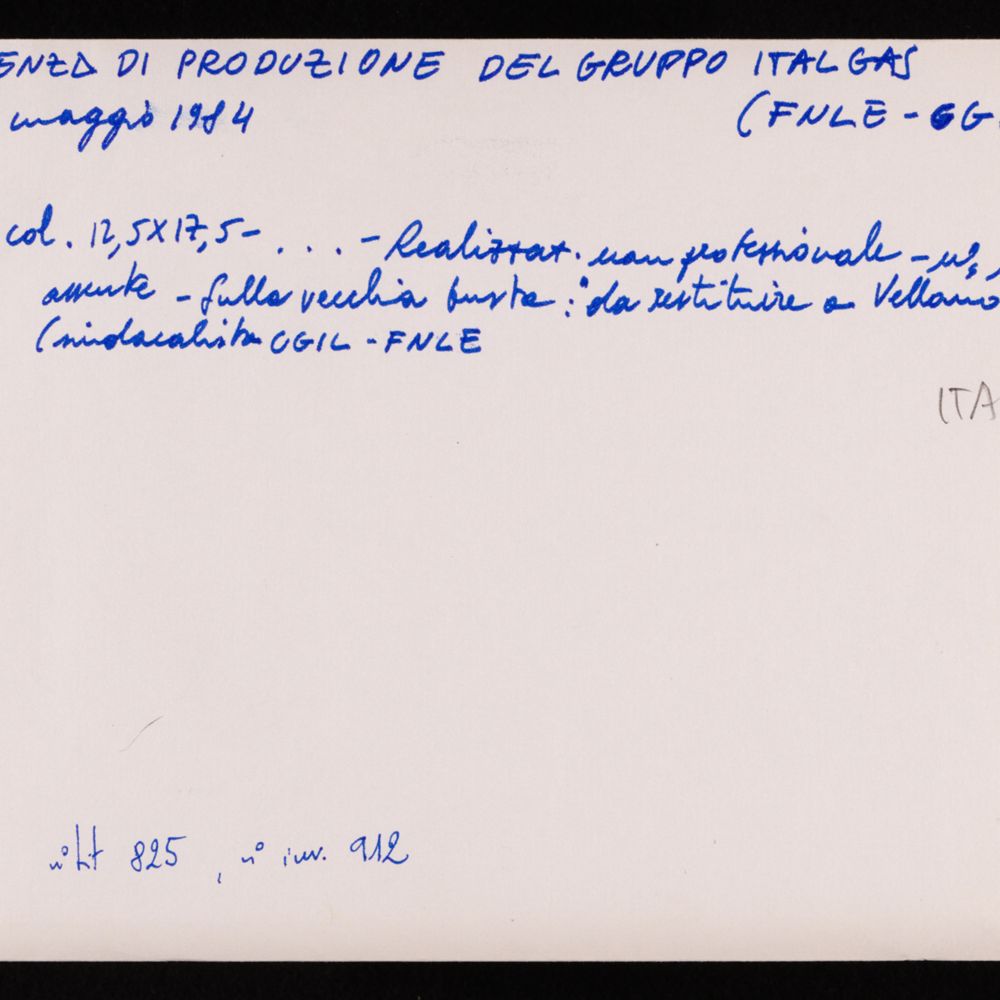 ENZA DI PRODUZIONE DEL GRUPPO ITALGAS
maggio 1984 (FNLE - CG
col. 12,5X17,5 - . . . - Realizzat. non professionale - n°,
assente - Sulla vecchia busta: "da restituire a Vellano
(sindacalista CGIL - FNLE
ITA
n° 825, n° inv. 912